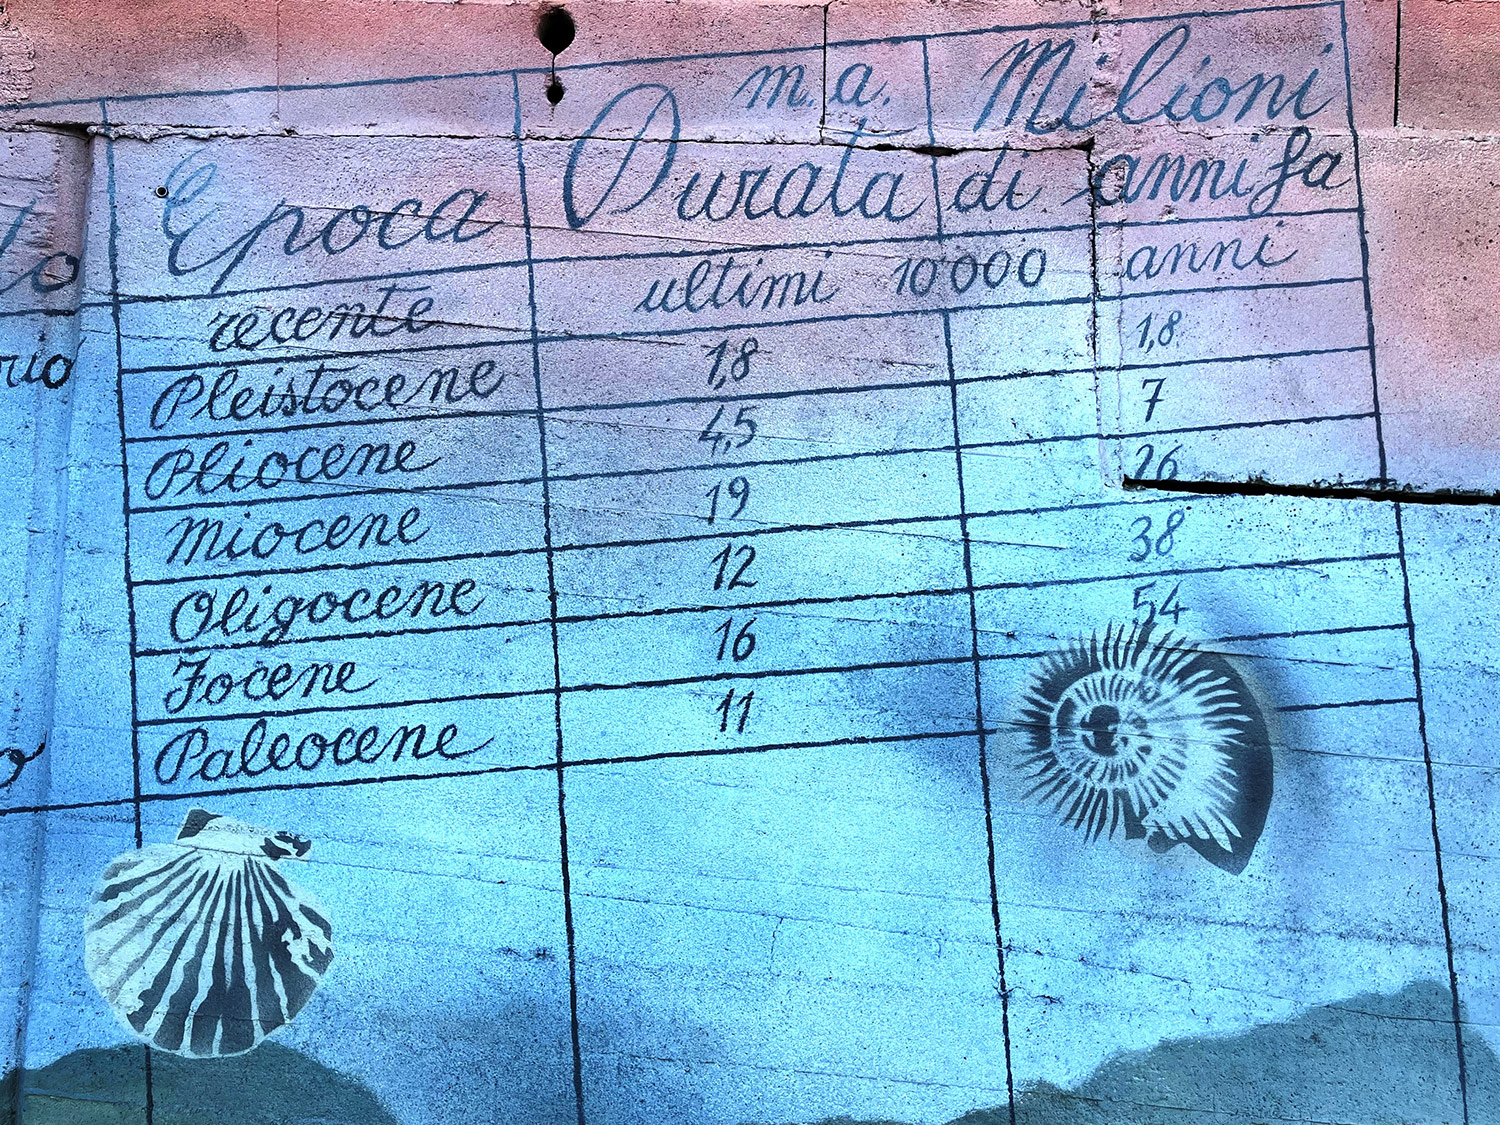 m.a. Milioni
Epoca Durata di anni fa
recente ultimi 10'000 anni
Pleistocene 1,8 1,8
Pliocene 4,5 7
Miocene 19 26
Oligocene 12 38
Eocene 16 54
Paleocene 11